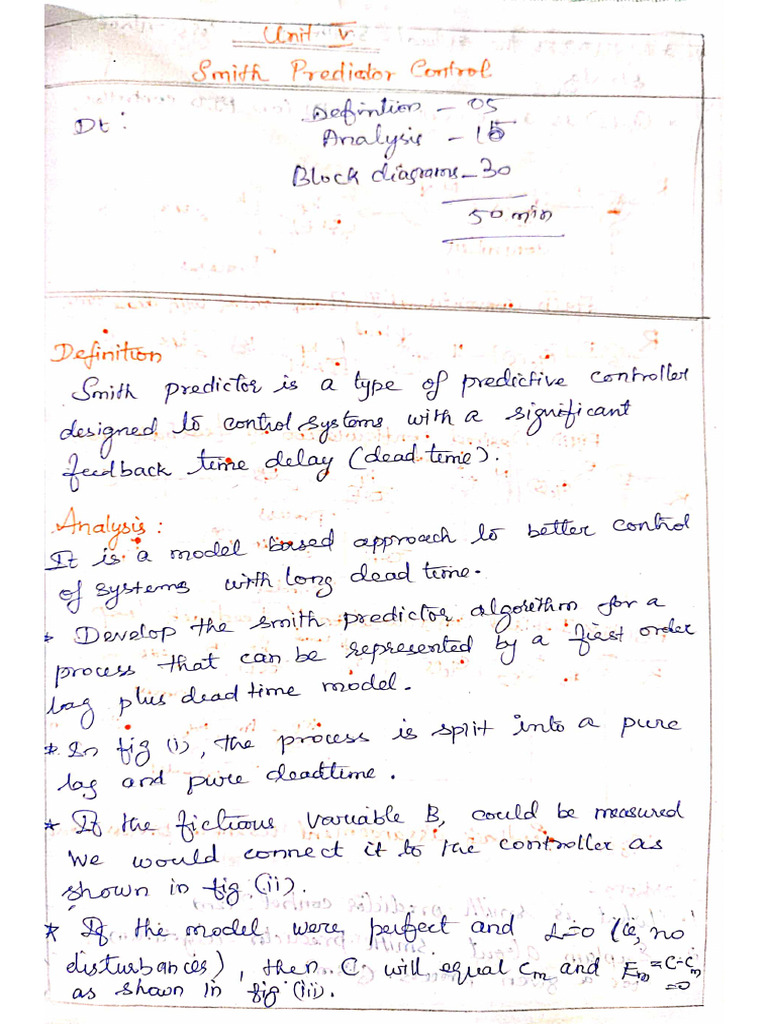 Unit V
Smith Predictor Control
Dt :
Defintion - 05
Analysis - 15
Block diagrams - 30
50 min
Definition
Smith predictor is a type of predictive controller
designed to control systems with a significant
feedback time delay (dead time).
Analysis :
It is a model based approach to better control
of systems with long dead time.
* Develop the smith predictor algorithm for a
process that can be represented by a first order
lag plus dead time model.
* In fig (i), the process is split into a pure
lag and pure deadtime.
* If the fictious variable B, could be measured
we would connect it to the controller as
shown in fig.(ii).
* If the model were perfect and L=0 (ie, no
disturbances), then C will equal Cm and Em = C-Cm
=0
as shown in fig.(iii).